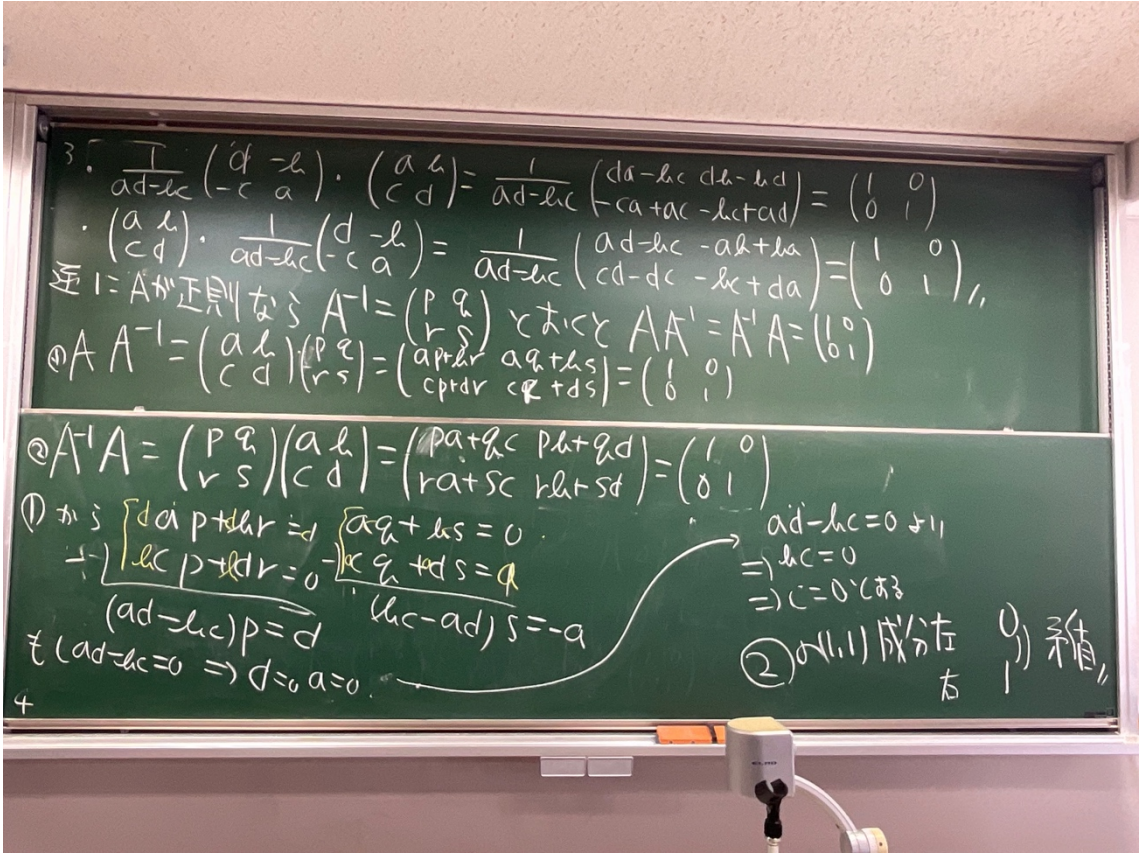 3. 1/(ad-bc) (d -b / -c a) · (a b / c d) = 1/(ad-bc) (da-bc db-bd / -ca+ac -bc+ad) = (1 0 / 0 1)
· (a b / c d) · 1/(ad-bc) (d -b / -c a) = 1/(ad-bc) (ad-bc -ab+ba / cd-dc -bc+da) = (1 0 / 0 1)〃
逆に Aが正則なら A⁻¹ = (p q / r s) とおくと AA⁻¹ = A⁻¹A = (1 0 / 0 1)
① A A⁻¹ = (a b / c d)(p q / r s) = (ap+br aq+bs / cp+dr cq+ds) = (1 0 / 0 1)
② A⁻¹A = (p q / r s)(a b / c d) = (pa+qc pb+qd / ra+sc rb+sd) = (1 0 / 0 1)
① から
dap+dbr=d
-) bcp+bdr=0
(ad-bc)p=d
aq+bs=0
-) acq+ads=a
(bc-ad)s=-a
もし ad-bc=0 ⇒ d=0 a=0.
ad-bc=0 より
⇒ bc=0
⇒ c=0である
② の(1,1)成分左 0
右 1 ) 矛盾〃
4
ELMO